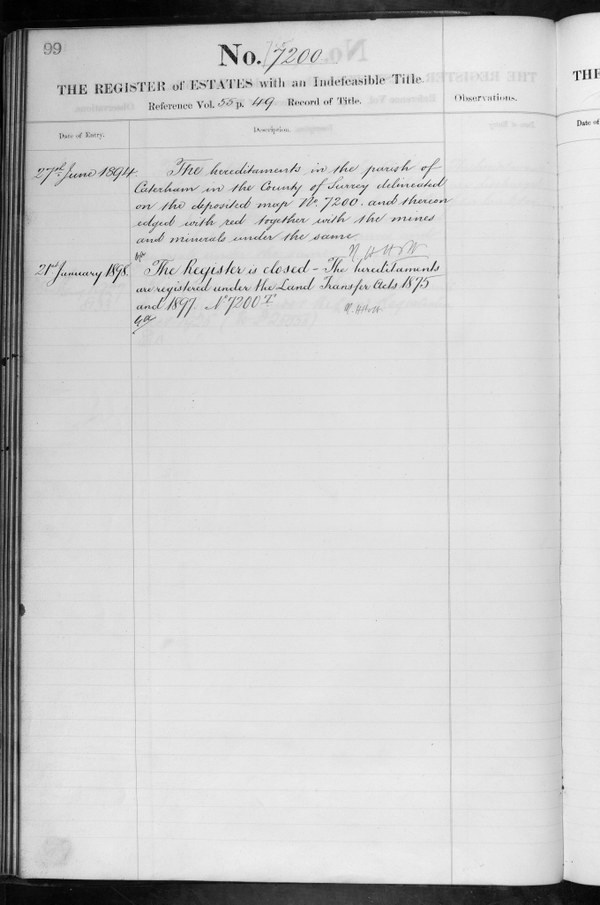 99
No. 7200
THE REGISTER of ESTATES with an Indefeasible Title.
Reference Vol. 55 p. 49 Record of Title.
Observations.
Date of Entry.
Description.
27th June 1894.
The hereditaments in the parish of
Caterham in the County of Surrey delineated
on the deposited map No. 7200. and thereon
edged with red together with the mines
and minerals under the same
21st January 1898.
The Register is closed – The hereditaments
are registered under the Land Transfer Acts 1875
and 1897. No 7200
THE
Date of